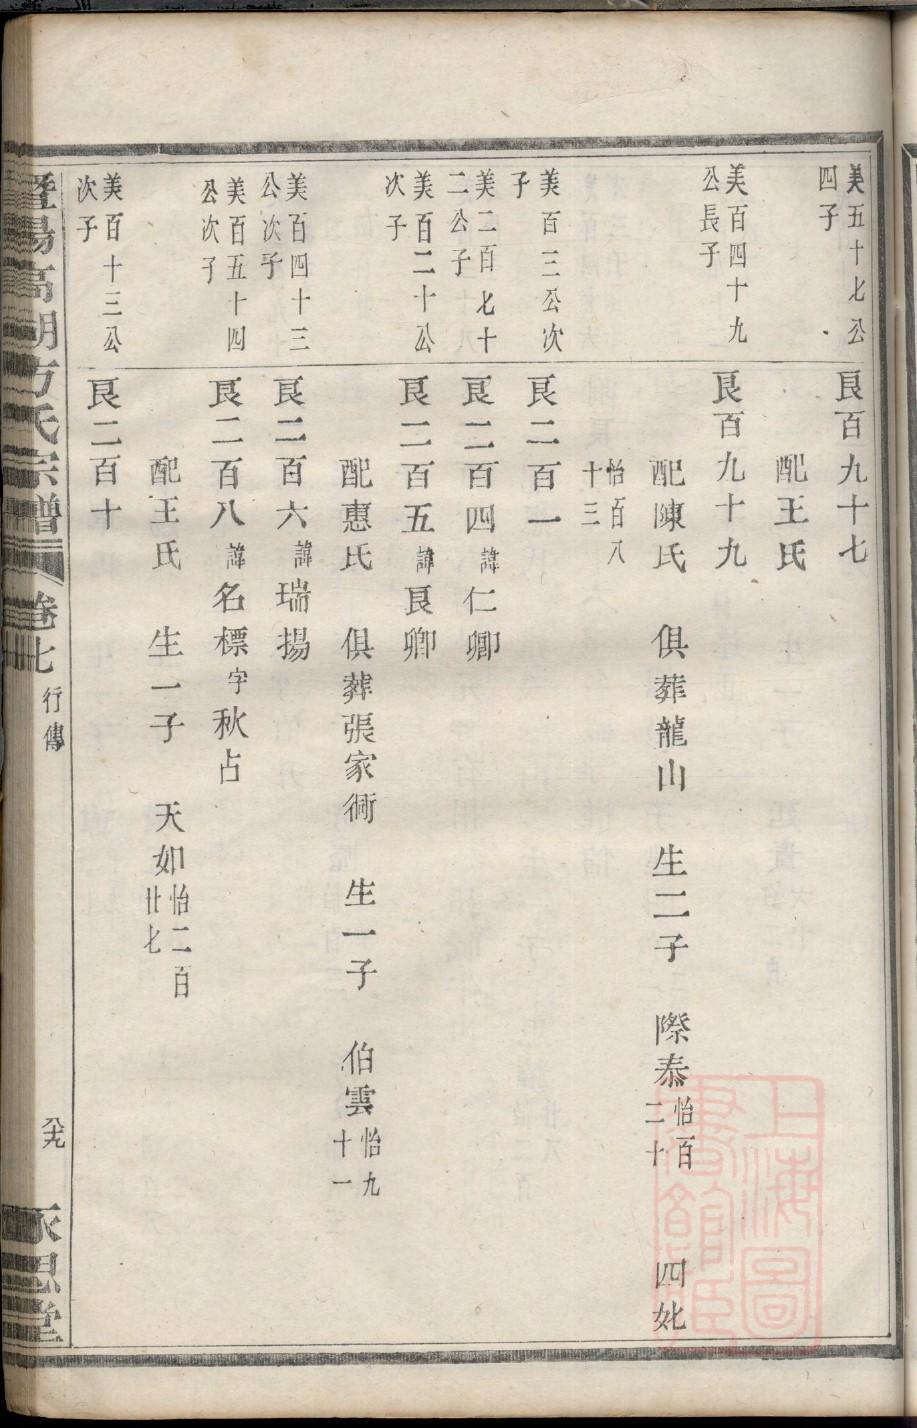 美五十七公
四子
艮百九十七
配王氏
美百四十九
公長子
艮百九十九
配陳氏 俱葬龍山 生二子 際泰 怡百二十 四妣
怡百八十三
美百三公次
子
艮二百一
美二百七十
二公子
艮二百四 諱仁卿
美百二十公
次子
艮二百五 諱艮卿
配惠氏 俱葬張家衕 生一子 伯雲 怡九十一
美百四十三
公次子
艮二百六 諱瑞揚
美百五十四
公次子
艮二百八 諱名標 字秋占
配王氏 生一子 天如 怡二百廿七
美百十三公
次子
艮二百十
暨陽高湖方氏宗譜 卷七 行傳 八九 永思堂
上海圖書館藏